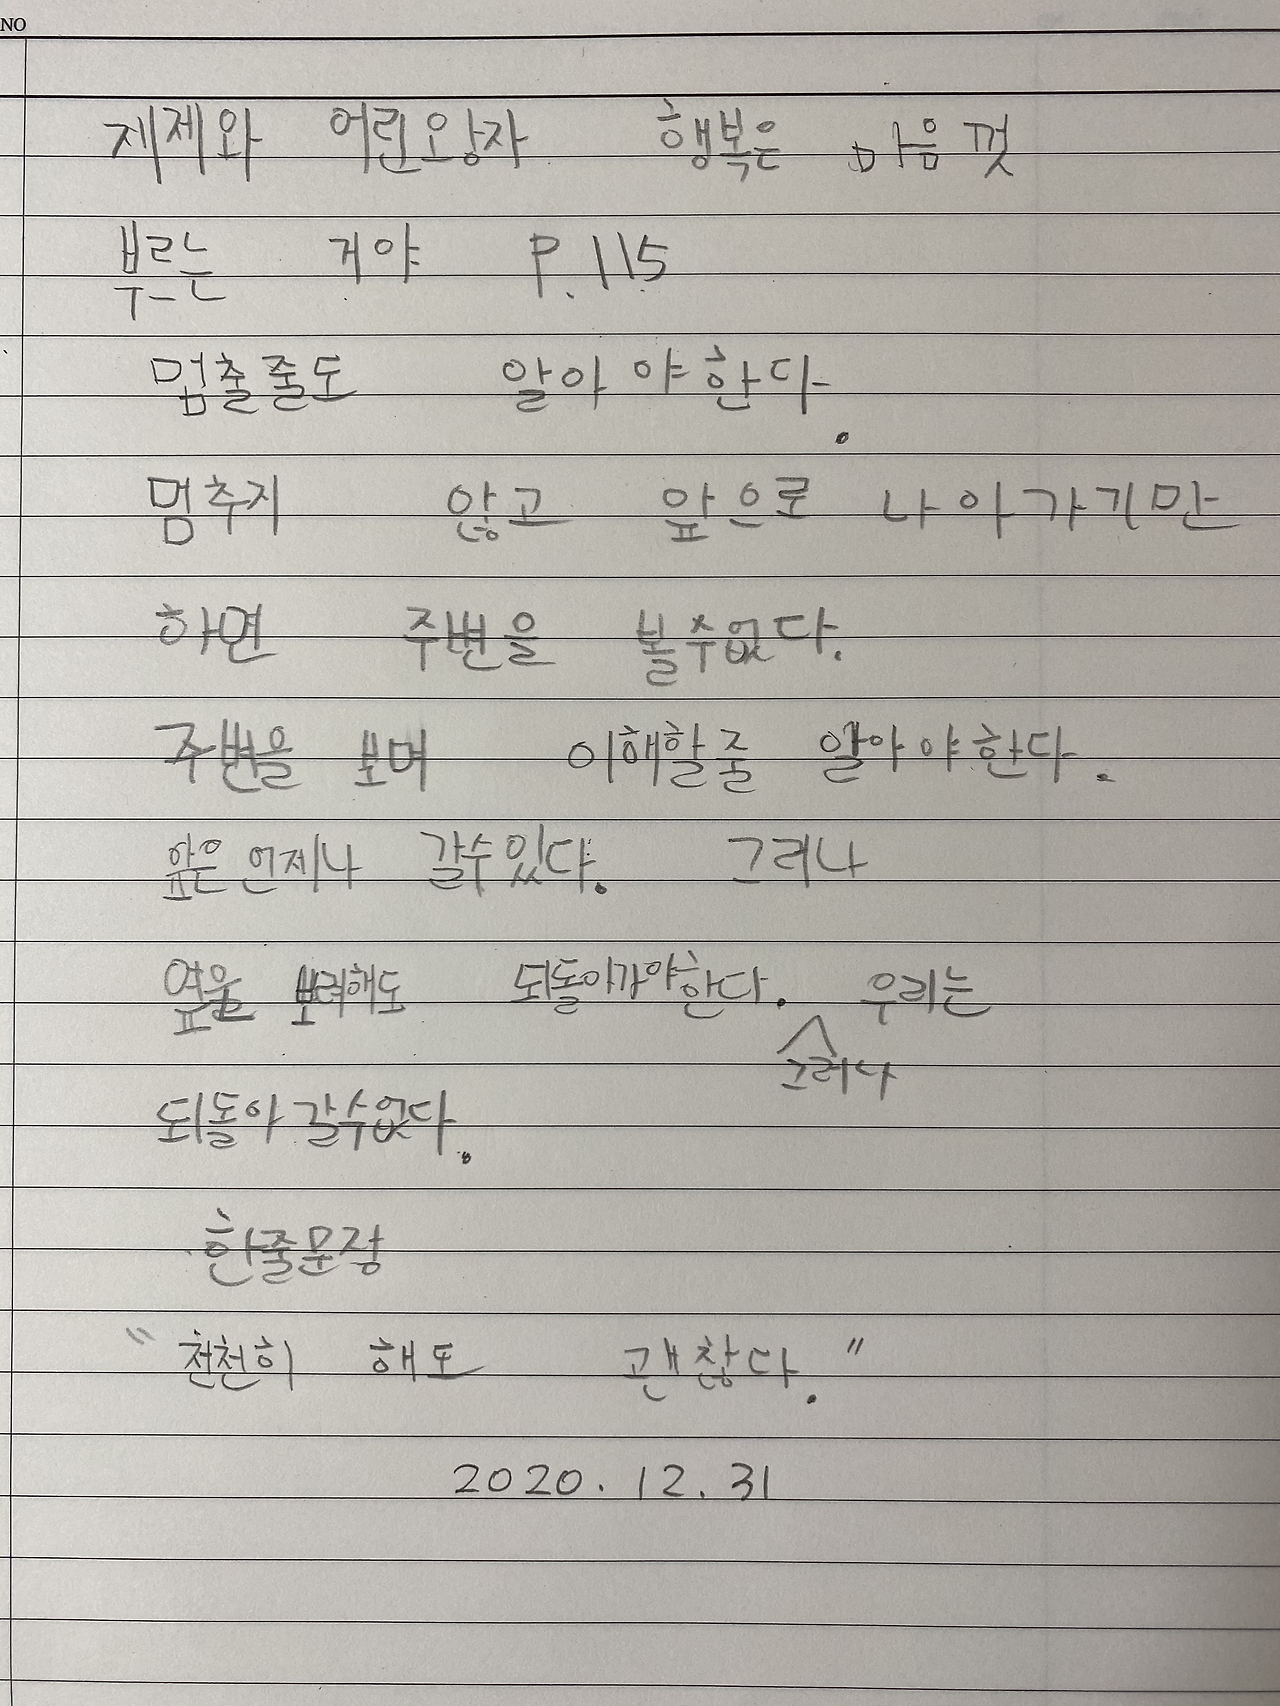 NO
제제와 어린왕자 행복은 마음껏
부르는 거야 P.115
멈출줄도 알아야한다.
멈추지 않고 앞으로 나아가기만
하면 주변을 볼수없다.
주변을 보며 이해할줄 알아야한다.
앞은 언제나 갈수있다. 그러나
옆을 보려해도 되돌아가야한다. 우리는
그러나
되돌아 갈수없다.
한줄문장
"천천히 해도 괜찮다."
2020.12.31